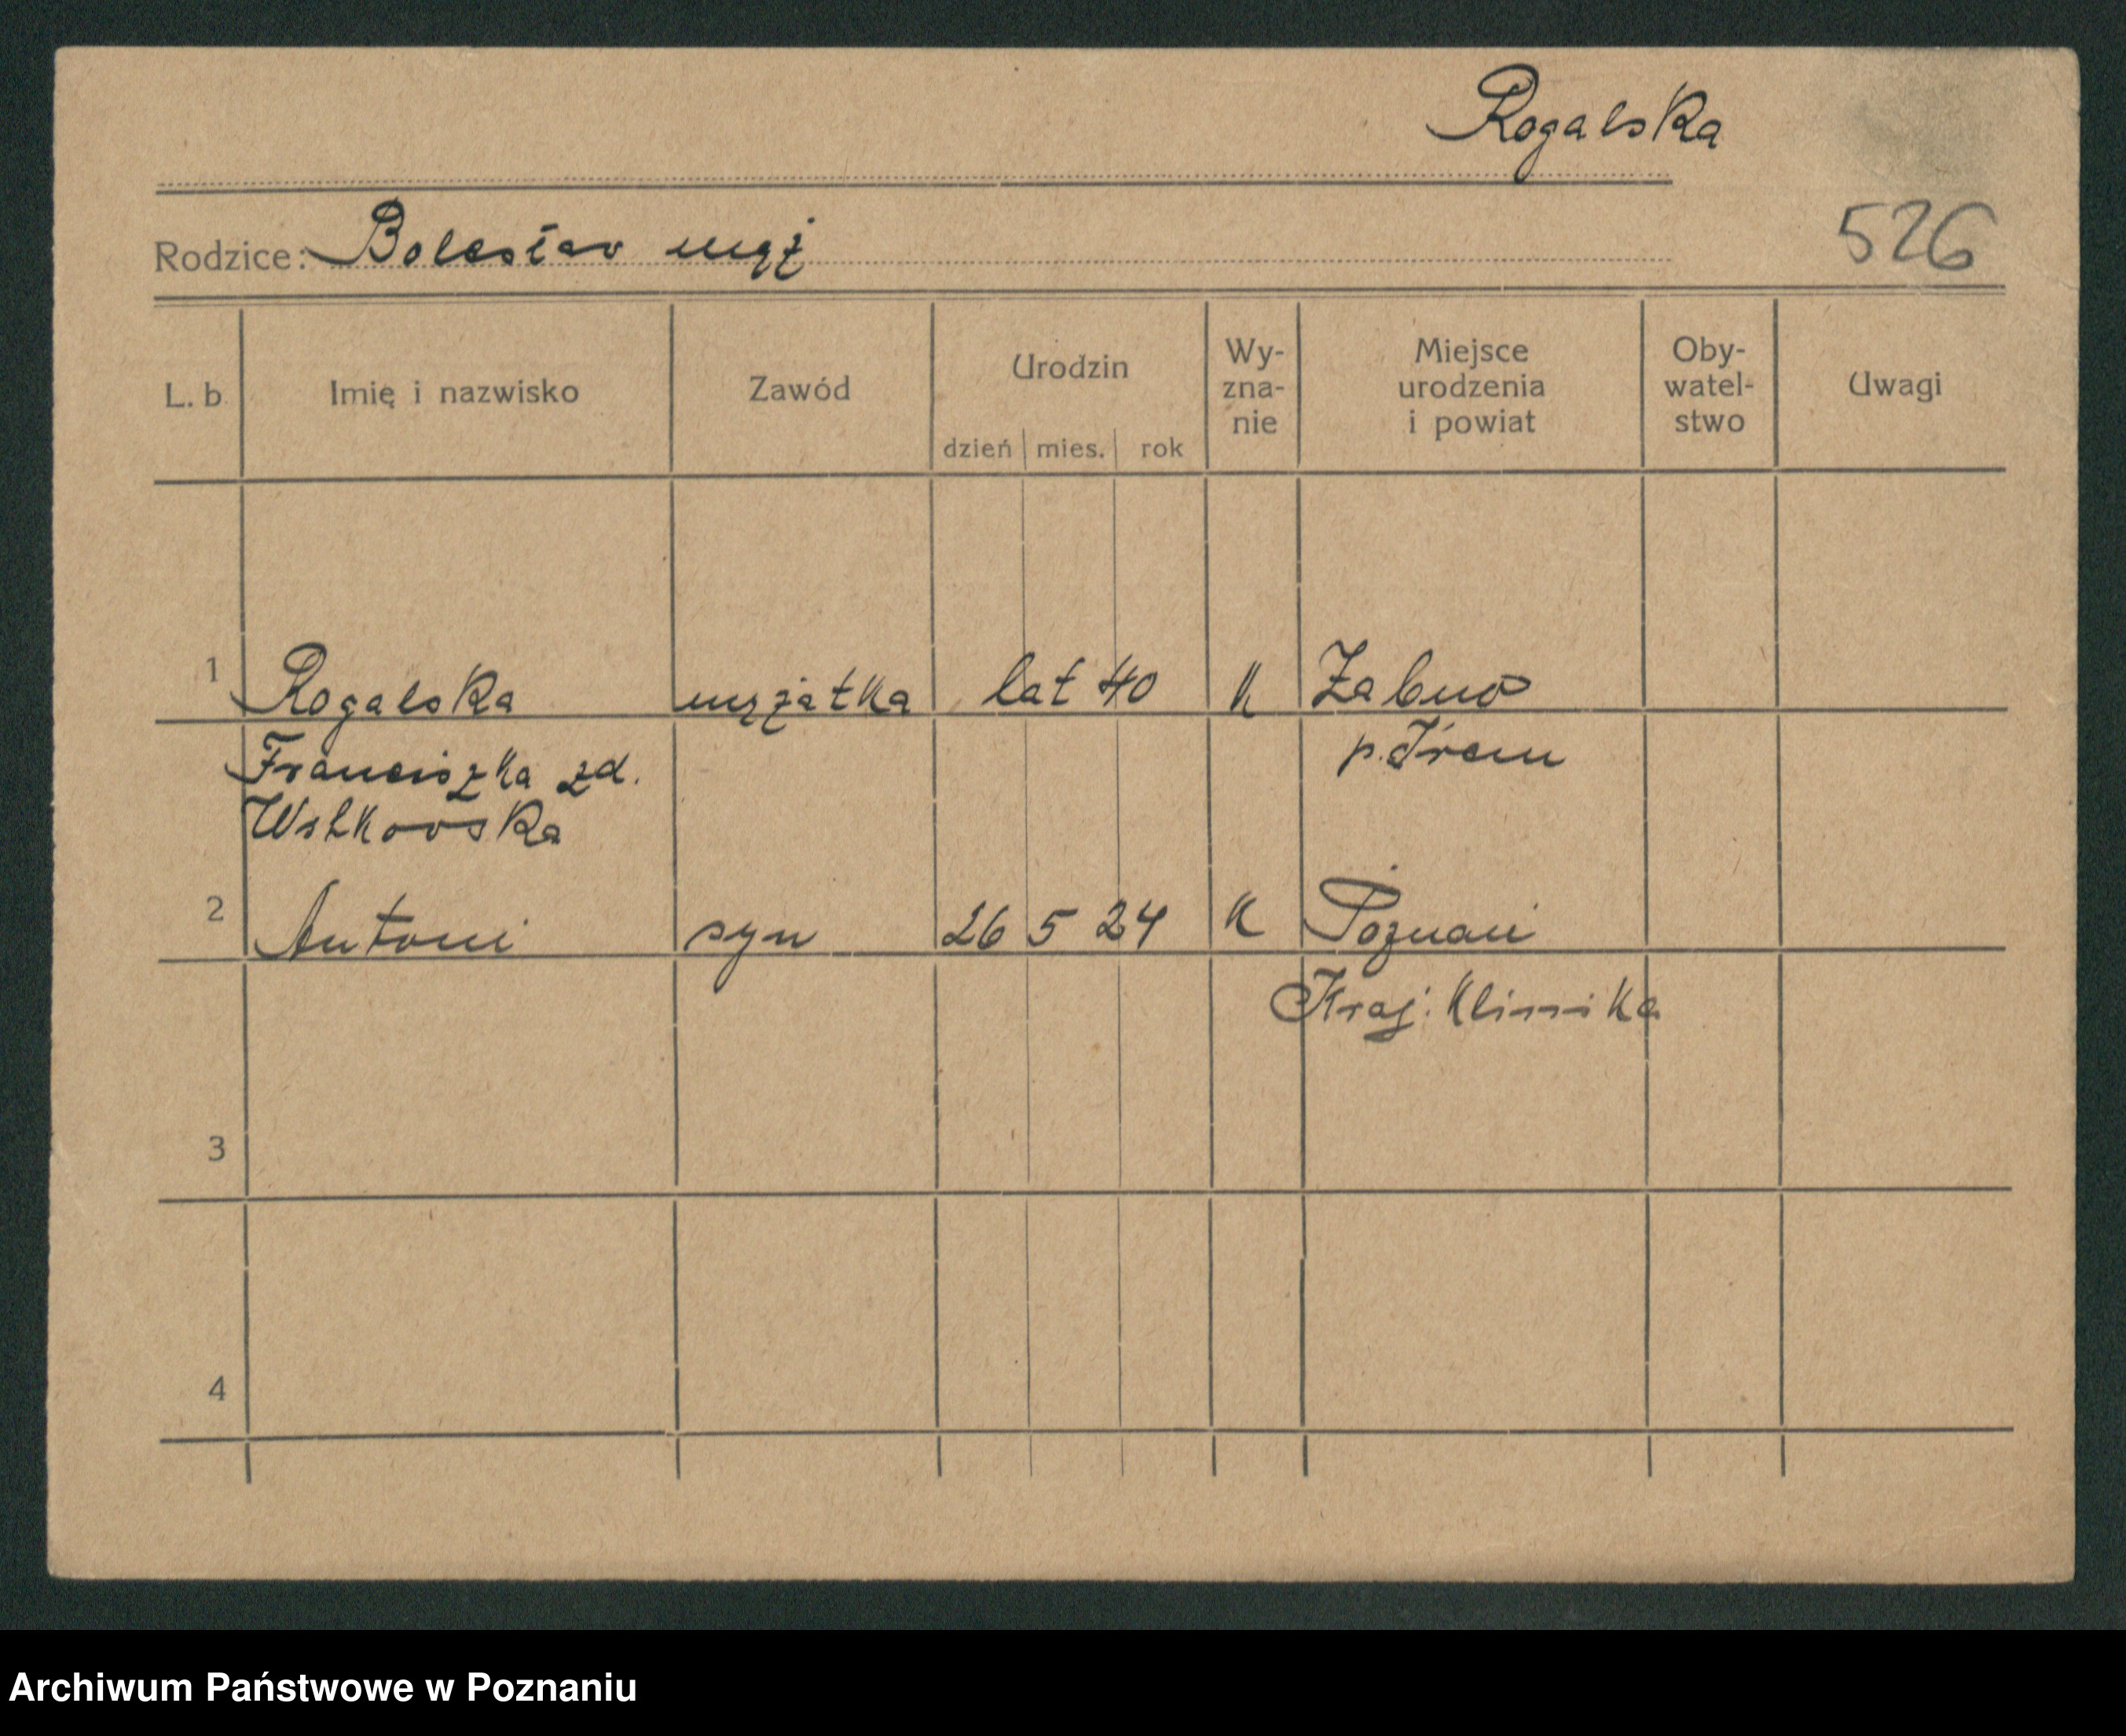 Rogalska
Rodzice: Bolesław mąż
526
L. b. Imię i nazwisko Zawód Urodzin dzień mies. rok Wy-zna-nie Miejsce urodzenia i powiat Oby-watel-stwo Uwagi
1 Rogalska mężatka lat 40 K Żabno
Franciszka zd. p. Śrem
2 Antoni syn 26 5 24 K Poznań
Kraj. Klinika
3
4
Archiwum Państwowe w Poznaniu